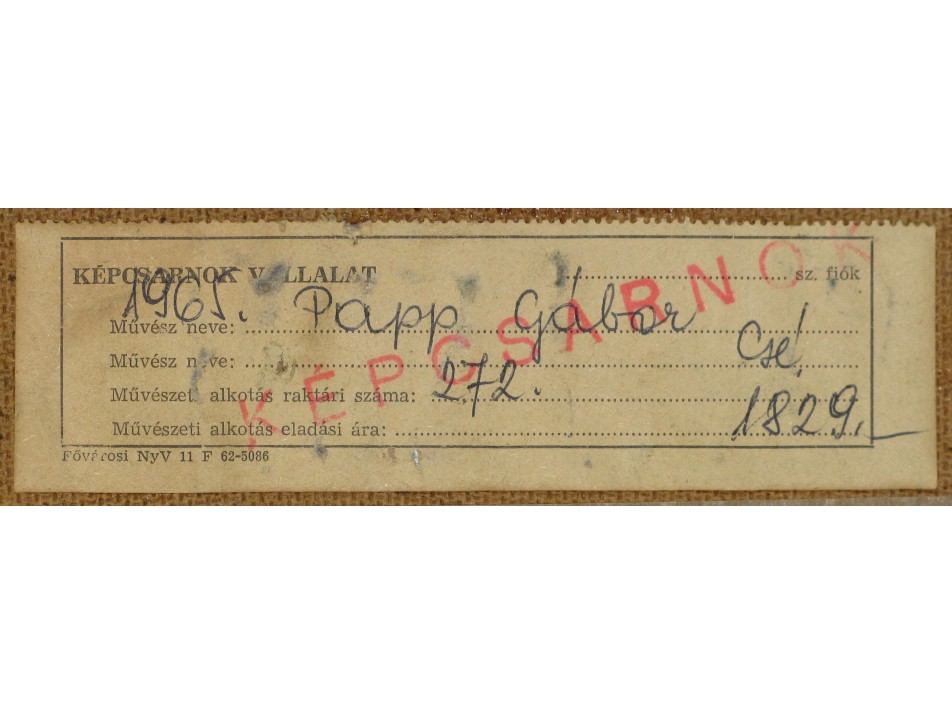 KÉPCSARNOK VÁLLALAT ........ sz. fiók
1965.
Művész neve: Papp Gábor
Művész neve: Csé!
Művészeti alkotás raktári száma: 272.
Művészeti alkotás eladási ára: 1829.—
Fővárosi NyV 11 F 62-5086
KÉPCSARNOK